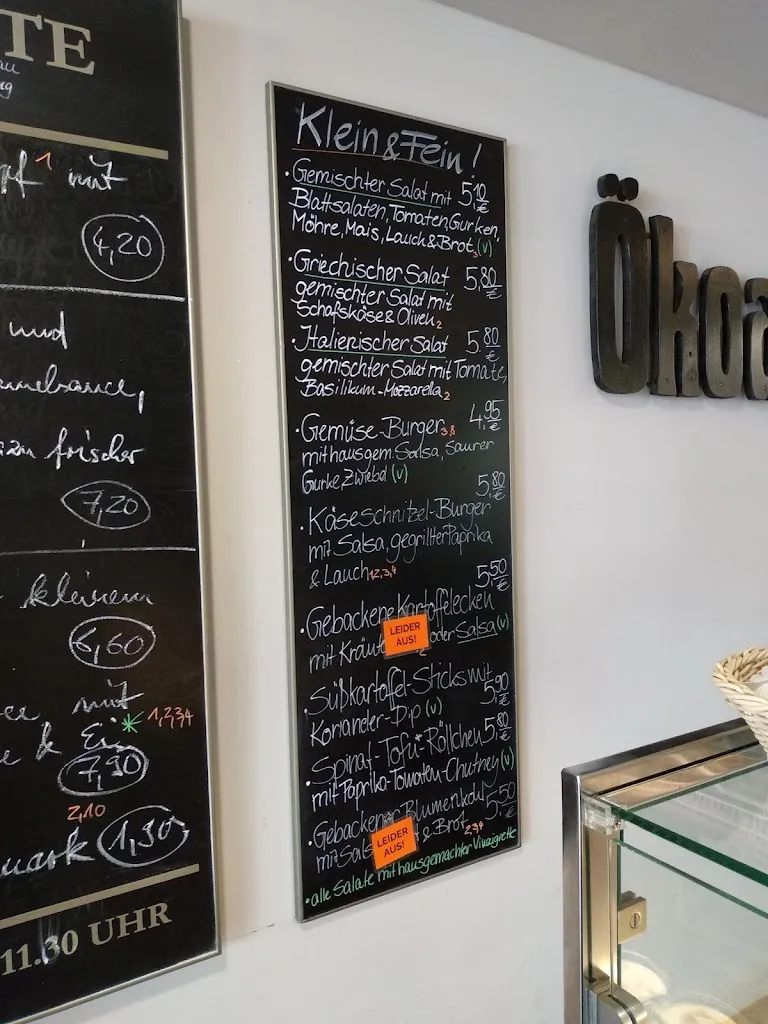 TE
mit
4,20
und
zum frischer
7,20
kleinem
6,60
mit
& Ei * 1,2,3,4
7,90
2,10
1,30
11.30 UHR
Klein & Fein!
• Gemischter Salat mit 5,10 €
Blattsalaten, Tomaten, Gurken,
Möhre, Mais, Lauch & Brot (v)
• Griechischer Salat 5,80 €
gemischter Salat mit
Schafskäse & Oliven 2
• Italienischer Salat 5,80 €
gemischter Salat mit Tomate,
Basilikum-Mozzarella 2
• Gemüse-Burger 3,8 4,95 €
mit hausgem. Salsa, Saurer
Gurke, Zwiebel (v)
5,80 €
• Käseschnitzel-Burger
mit Salsa, gegrillter Paprika
& Lauch 1,2,3,4
5,50 €
• Gebackene Kartoffelecken
mit Kräute 2 oder Salsa (v)
LEIDER
AUS!
• Süßkartoffel-Sticks mit
Koriander-Dip (v) 5,90 €
• Spinat-Tofu-Röllchen 5,80 €
mit Paprika-Tomaten-Chutney (v)
• Gebackener Blumenkohl 5,50
mit Sals & Brot 2,3,4
LEIDER
AUS!
• alle Salate mit hausgemachter Vinaigrette
Ökoa